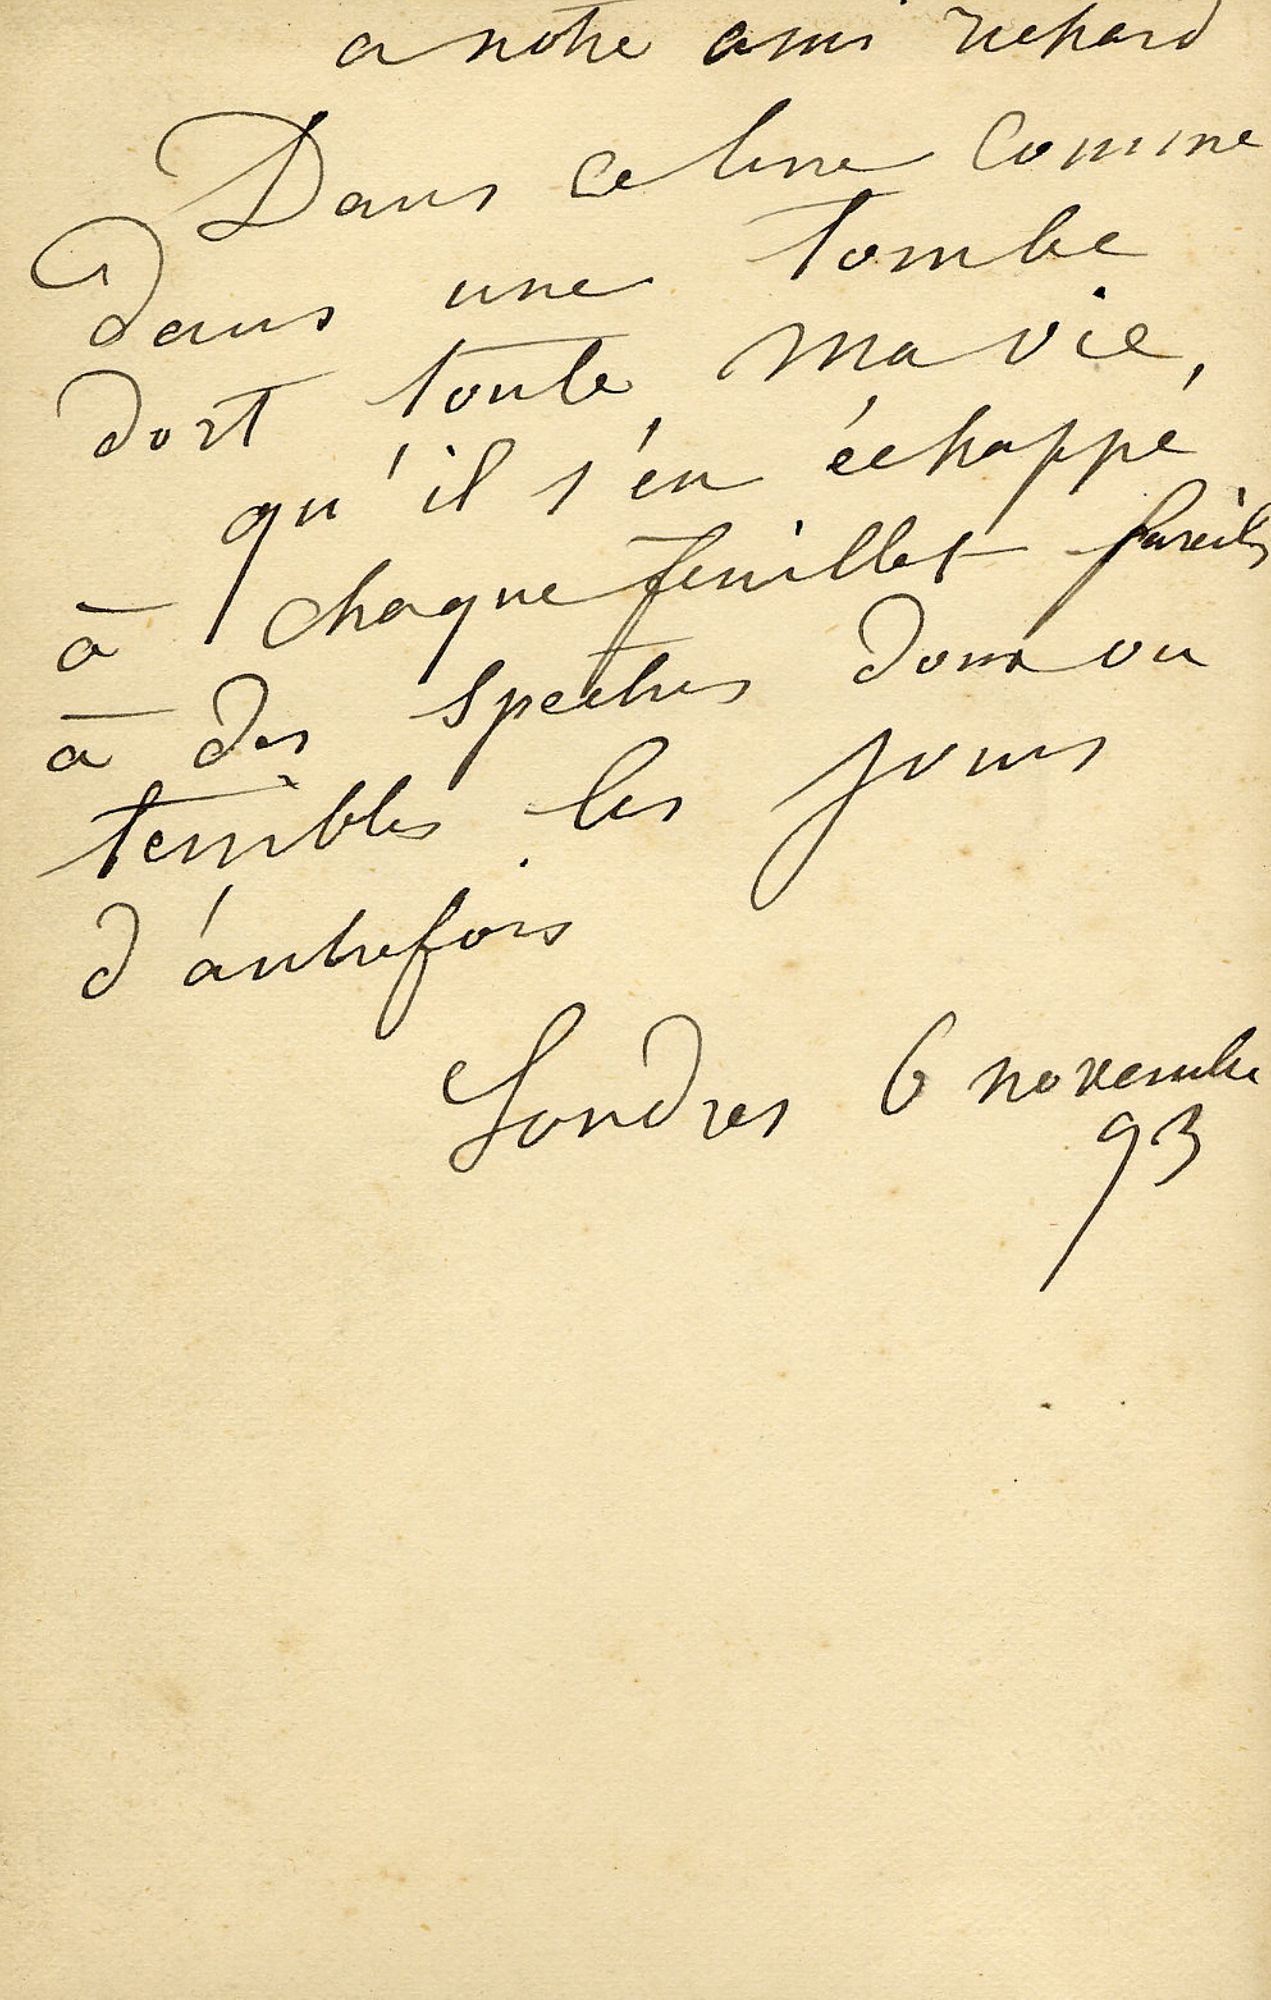 a notre ami richard
Dans ce livre comme
dans une tombe
dort toute ma vie,
qu'il s'en échappe
à chaque feuillet pareils
à des spectres doux ou
terribles les jours
d'autrefois
Londres 6 novembre
93